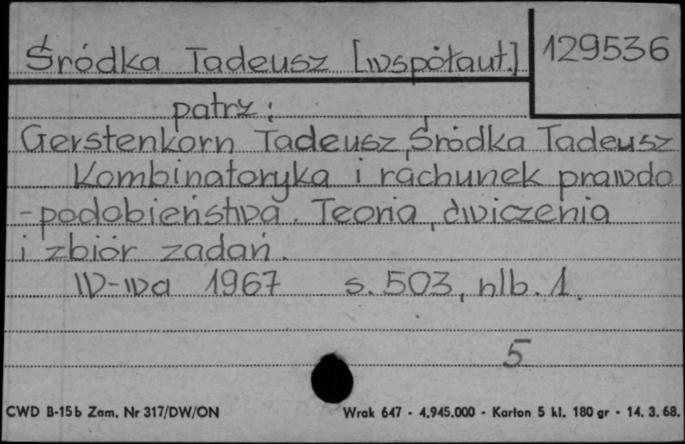 Śródka Tadeusz [współaut.]
129536
patrz:
Gerstenkorn Tadeusz, Śródka Tadeusz
Kombinatoryka i rachunek prawdo
-podobieństwa. Teoria, ćwiczenia
i zbiór zadań.
W-wa 1967 s. 503, nlb. 1.
5
CWD B-15b Zam. Nr 317/DW/ON
Wrak 647 - 4.945.000 - Karton 5 kl. 180 gr - 14. 3. 68.